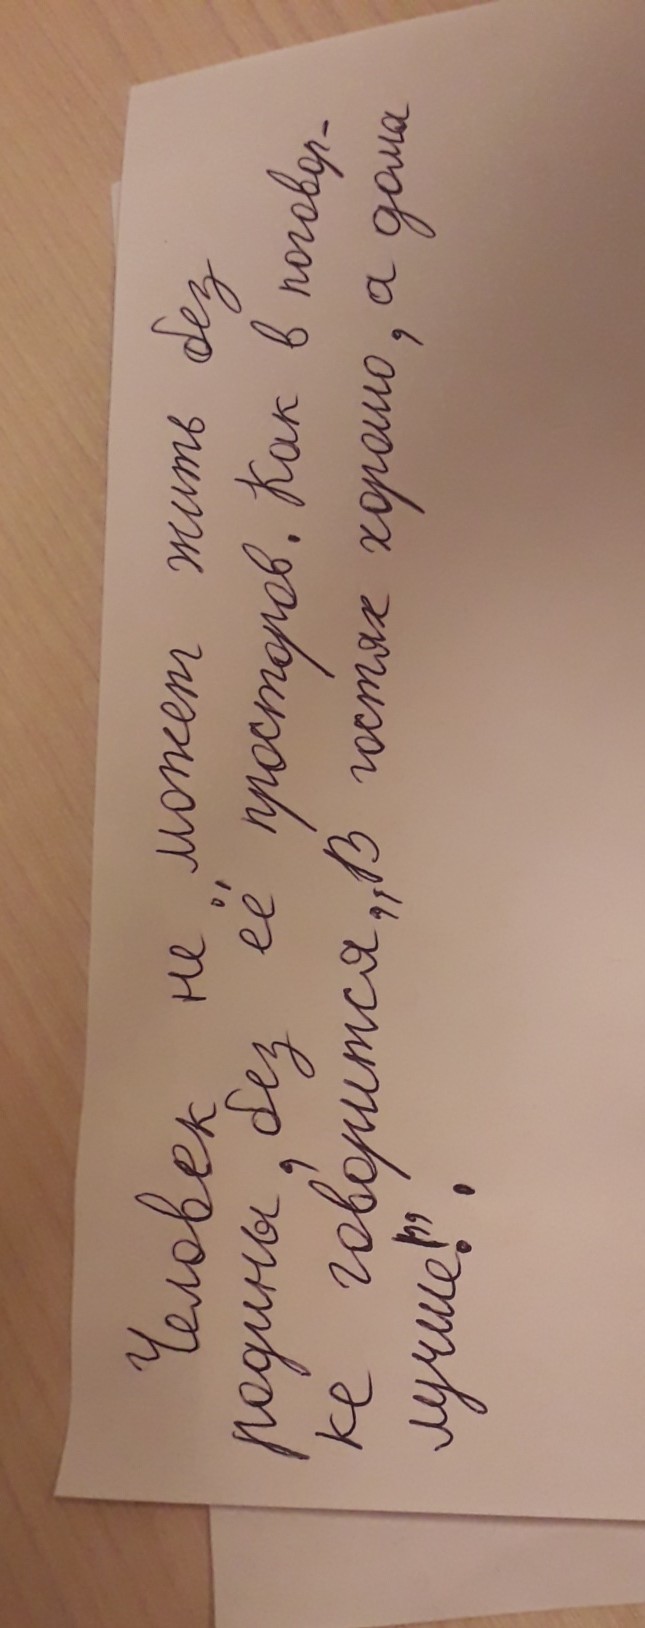 Человек не может жить без
родины, без её просторов. Как в поговор-
ке говорится „В гостях хорошо, а дома
лучше!”.